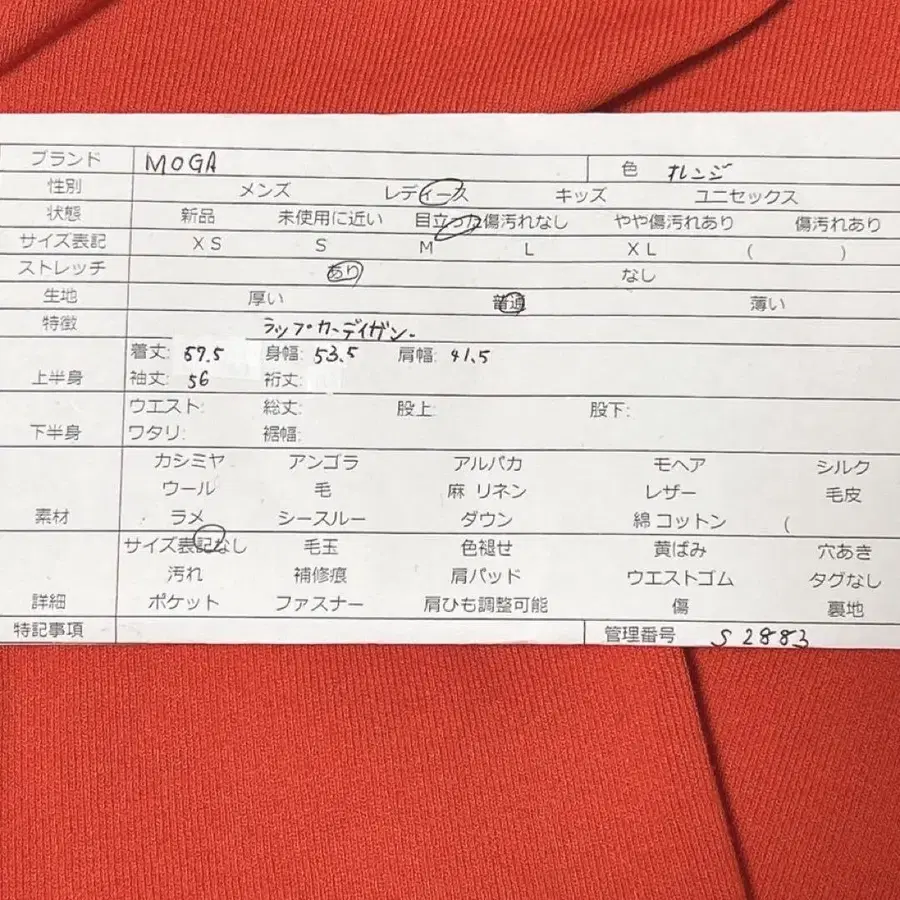 ブランド MOGA 色 オレンジ
性別 メンズ レディース キッズ ユニセックス
状態 新品 未使用に近い 目立った傷汚れなし やや傷汚れあり 傷汚れあり
サイズ表記 XS S M L XL ( )
ストレッチ あり なし
生地 厚い 普通 薄い
特徴 ラップカーディガン
着丈: 57.5 身幅: 53.5 肩幅: 41.5
上半身 袖丈: 56 裄丈:
ウエスト: 総丈: 股上: 股下:
下半身 ワタリ: 裾幅:
カシミヤ アンゴラ アルパカ モヘア シルク
ウール 毛 麻 リネン レザー 毛皮
素材 ラメ シースルー ダウン 綿 コットン (
サイズ表記なし 毛玉 色褪せ 黄ばみ 穴あき
汚れ 補修痕 肩パッド ウエストゴム タグなし
詳細 ポケット ファスナー 肩ひも調整可能 傷 裏地
特記事項 管理番号 S2883